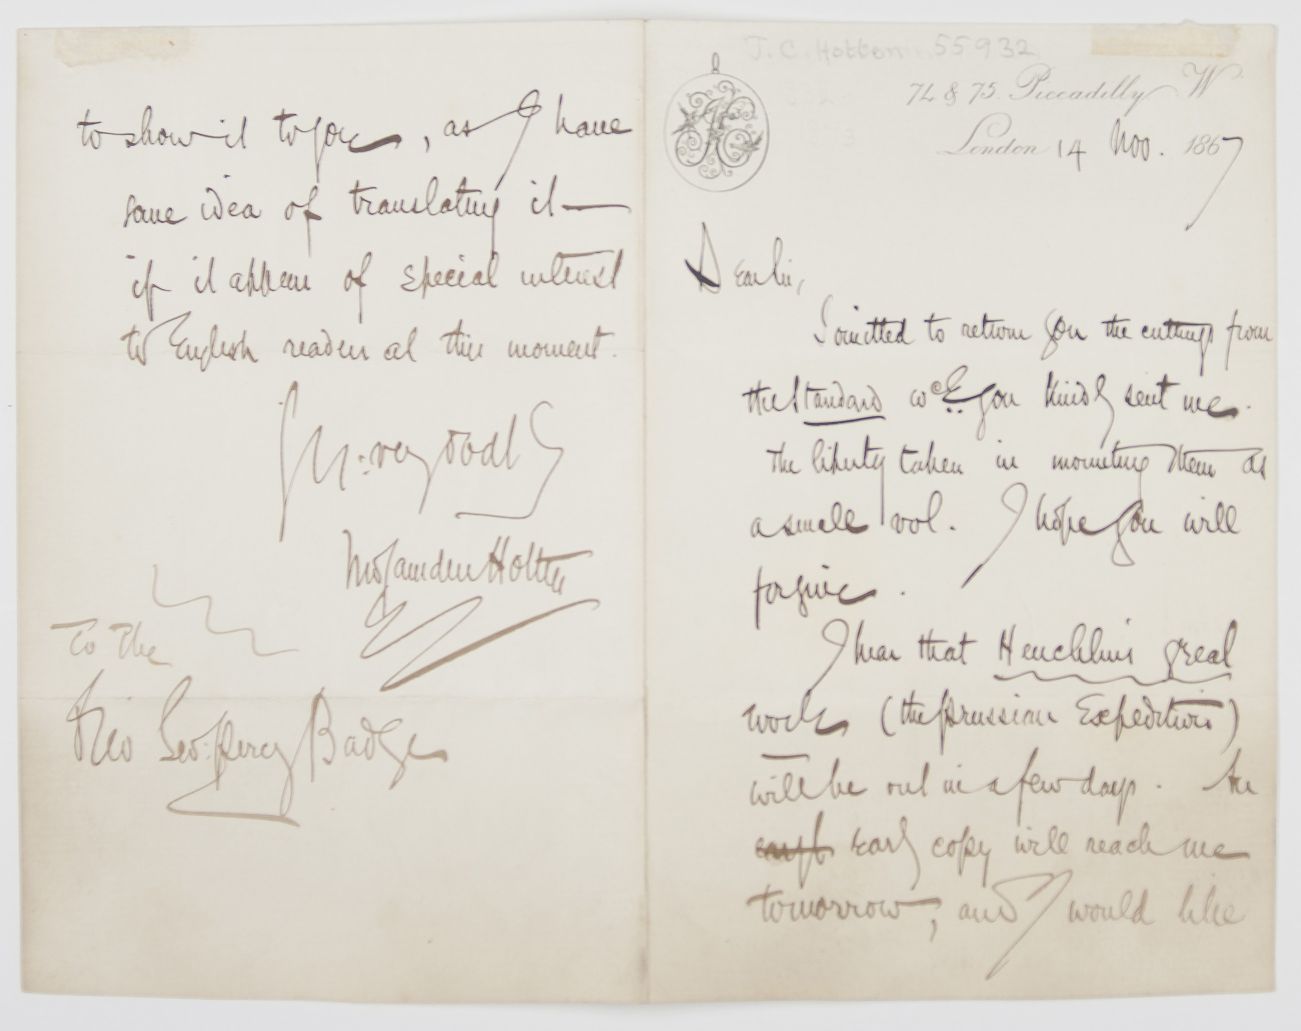 J. C. Hotten 55932
74 & 75 Piccadilly W
London 14 Nov. 1867
Dear Sir,
I omitted to return you the cuttings from
the Standard wᶜʰ you kindly sent me.
The liberty taken in mounting them as
a small vol. I hope you will
forgive.
I hear that Heuchlin's great
work (the Prussian Expedition)
will be out in a few days. An
early copy will reach me
tomorrow, and I would like
to show it to you, as I have
some idea of translating it —
if it appear of special interest
to English readers at this moment.
very truly
Jno Camden Hotten
To the
Rev Geo: Percy Badger